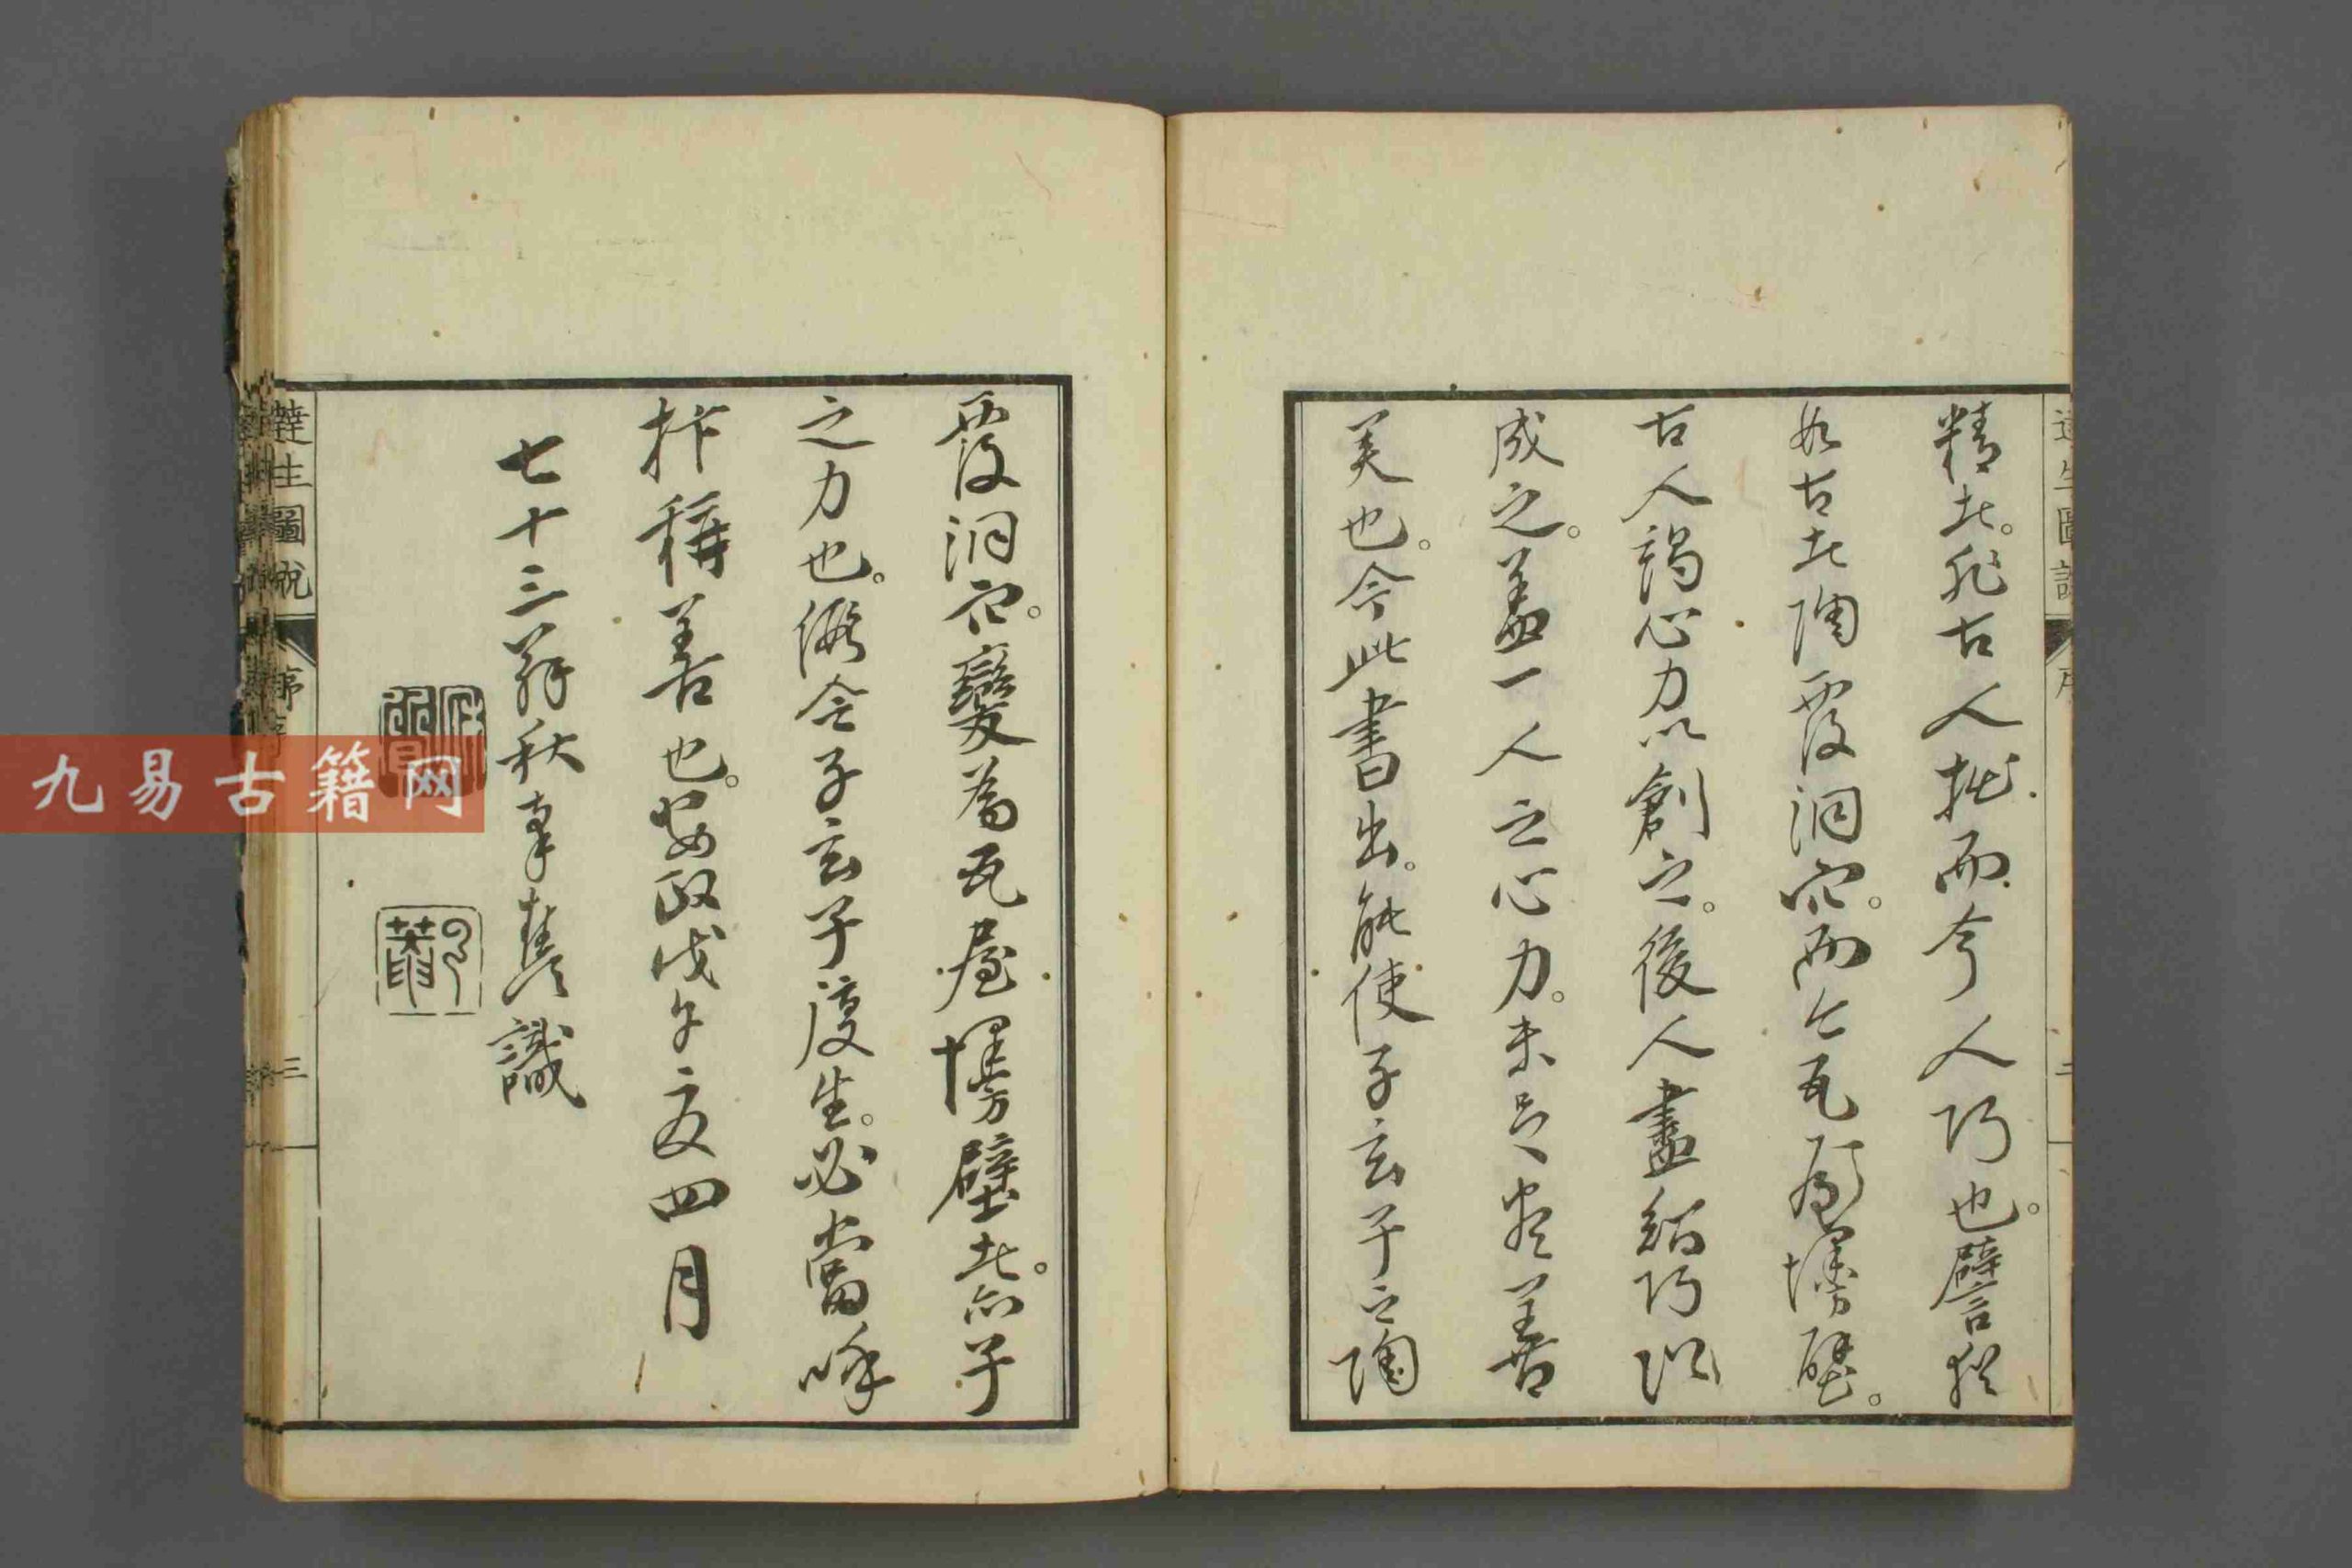 精者。非古人拙。而今人巧也。譬猶
如古者陶覆洞穴。而今瓦屋墁壁。
古人竭心力以創之。後人盡紹巧以
成之。蓋一人之心力。未足盡善
美也。今此書出。能使子玄子之陶
覆洞穴。變為瓦屋墁壁者。亦子
之力也。儻令子玄子復生。必當呼
抃稱善也。安政戊午夏四月
七十三翁秋
識
達生圖說
序
三
九易古籍网